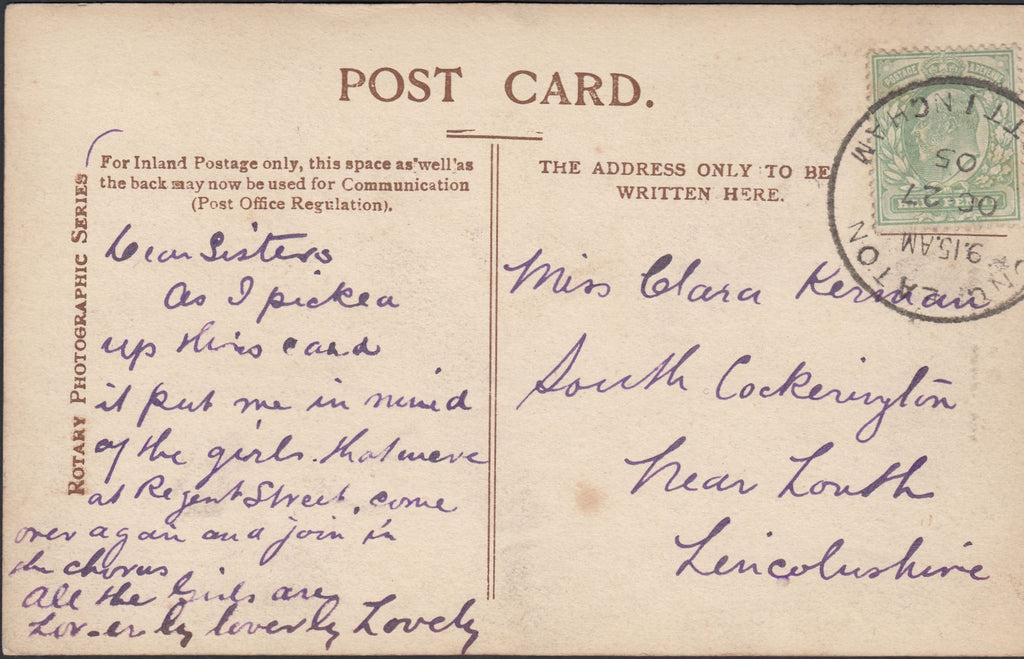 POST CARD.
For Inland Postage only, this space as well as
the back may now be used for Communication
(Post Office Regulation).
THE ADDRESS ONLY TO BE
WRITTEN HERE.
ROTARY PHOTOGRAPHIC SERIES
Dear Sisters
As I picked
up this card
it put me in mind
of the girls that were
at Regent Street, come
over again and join in
the chorus
All the Girls are
Lov-er-ly loverly Lovely
Miss Clara Kerman
South Cockerington
Near Louth
Lincolnshire
POSTAGE REVENUE
9.15AM
OC 27
05